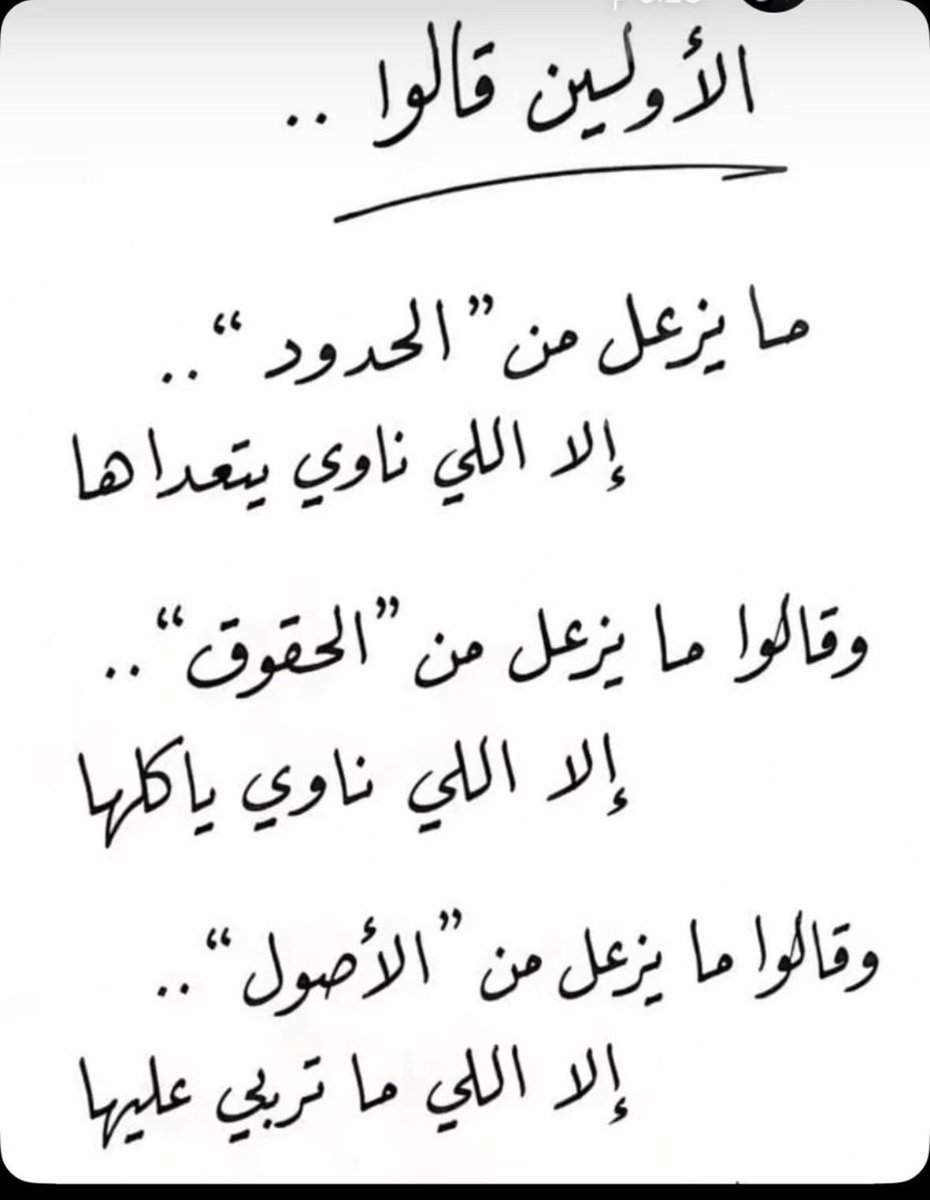 الأولين قالوا ..
ما يزعل من "الحدود" ..
إلا اللي ناوي يتعداها
وقالوا ما يزعل من "الحقوق" ..
إلا اللي ناوي ياكلها
وقالوا ما يزعل من "الأصول" ..
إلا اللي ما تربي عليها